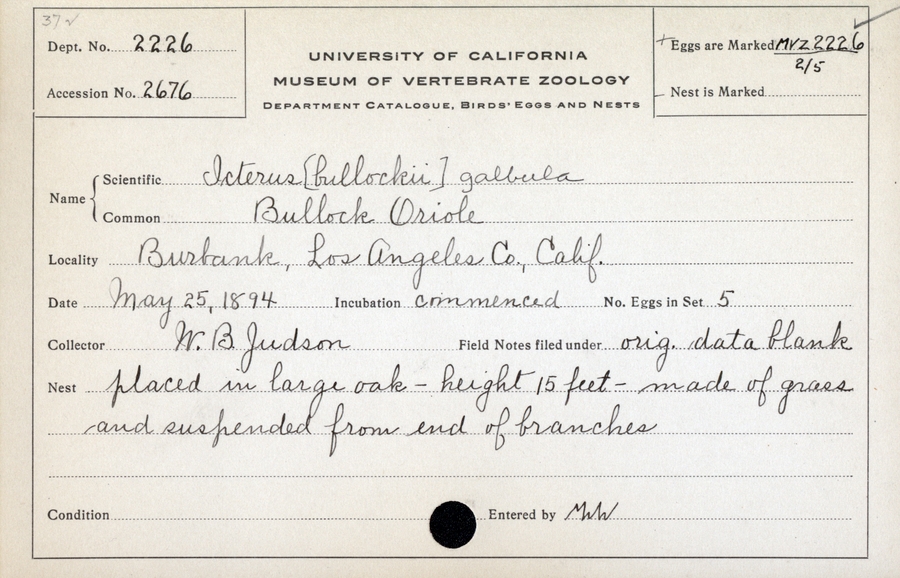 37
Dept. No. 2226
Accession No. 2676
UNIVERSITY OF CALIFORNIA
MUSEUM OF VERTEBRATE ZOOLOGY
DEPARTMENT CATALOGUE, BIRDS' EGGS AND NESTS
Eggs are Marked MVZ 2226
2/5
Nest is Marked
Name { Scientific Icterus [bullockii] galbula
Common Bullock Oriole
Locality Burbank, Los Angeles Co., Calif.
Date May 25, 1894 Incubation commenced No. Eggs in Set 5
Collector W. B. Judson Field Notes filed under orig. data blank
Nest placed in large oak - height 15 feet - made of grass
and suspended from end of branches
Condition Entered by